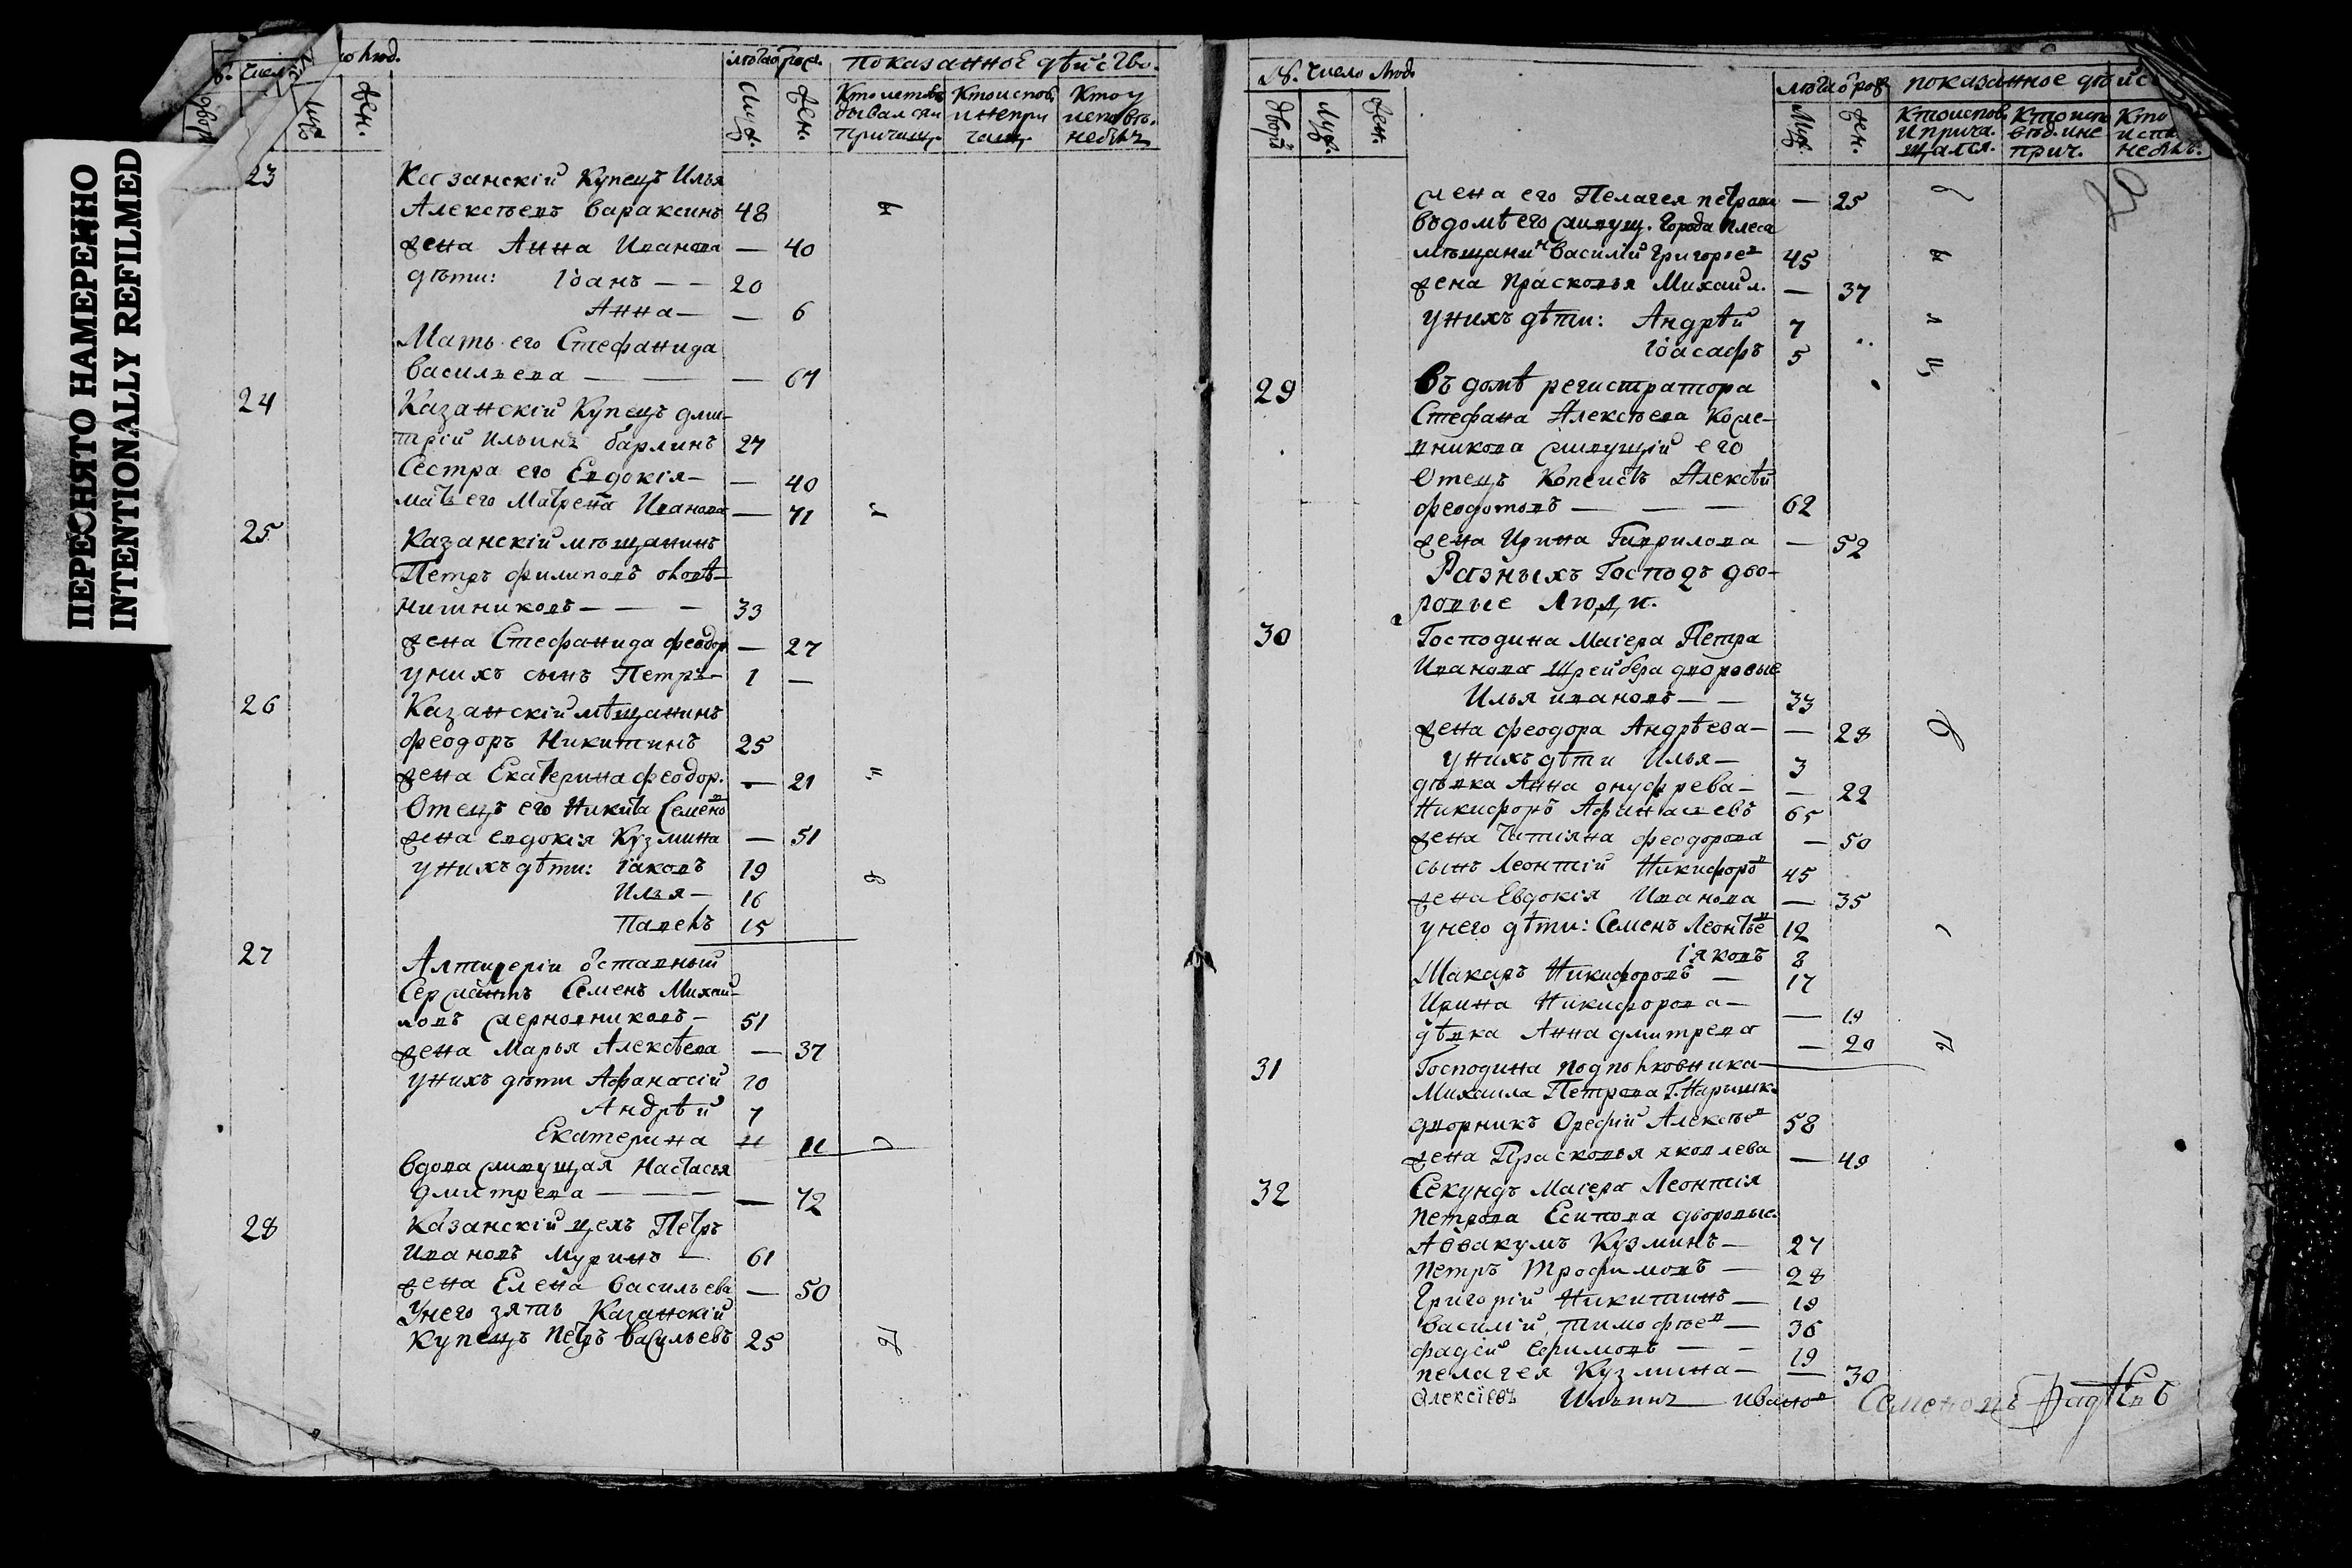 ПЕРЕСНЯТО НАМЕРЕННО
INTENTIONALLY REFILMED
люд.
лѣта о рож. показанное дѣйство.
двор муж. жен. муж. жен.
23 Казанскій Купецъ Илья
Алексѣевъ Вараксинъ 48
жена Анна Иванова — 40
дѣти: Іоанъ — — 20
Анна — — 6
Мать его Стефанида
Васильева — — — 67
24 Казанскій Купецъ Дми-
трій Ильинъ Барлинъ 27
Сестра его Евдокія — — 40
мать его Матрена Иванова — 71
25 Казанскій мѣщанинъ
Петръ Филиповъ
нишниковъ — — — 33
жена Стефанида Феодор — 27
у нихъ сынъ Петръ — 1 —
26 Казанскій мѣщанинъ
Феодоръ Никитинъ 25
жена Екатерина Феодор. — 21
Отецъ его Никита Семено в
жена Евдокія Кузмина — 51
у нихъ дѣти: Іаковъ 19
Илья — 16
Павелъ 15
27 Артилеріи отставный
Сержантъ Семенъ Михай-
ловъ Жерновниковъ — 51
жена Марья Алексѣева — 37
у нихъ дѣти Афанасій 10
Андрѣй 7
Екатерина 11 11
Вдова живущая Настасья
Дмитрева — — — — 72
28 Казанскій цехъ Петръ
Ивановъ Муринъ — 61
жена Елена Васильева — 50
У него зять Казанскій
Купецъ Петръ Васильевъ 25
Чи. число люд. лѣта о рож. показанное дѣйс
двор муж. жен. муж. жен. Кто испов. и прича. щался. Кто испо вѣд. и не прич. Кто у испо. не былъ.
жена его Пелагея Петрова — 25
въ домѣ его живущ. города Плеса
мѣщанинъ Василій Григорьев 45
жена Прасковья Михаил. — 37
у нихъ дѣти: Андрѣй 7
Іоасафъ 5
29 Въ домѣ регистратора
Стефана Алексѣева Коже-
вникова живущій его
Отецъ Копеистъ Алексѣй
Феодотовъ — — — 62
жена Ирина Гаврилова — 52
Разныхъ Господъ дво-
ровые Люди.
30 Господина Маіера Петра
Иванова Шрейбера дворовые
Илья Ивановъ — — 33
жена Феодора Андрѣева — — 28
у нихъ дѣти Илья — 3
дѣвка Анна Онуфрева — — 22
Никифоръ Афинасіевъ 65
жена Татіяна Феодорова — 50
сынъ Леонтій Никифоров 45
жена Евдокія Иванова — 35
у него дѣти: Семенъ Леонтьев 12
Іяковъ 8
Макаръ Никифоровъ — 17
Ирина Никифорова — — 19
дѣвка Анна Дмитрева — 20
31 Господина подполковника
Михаила Петрова Г. Нарышк.
дворникъ Орефій Алексѣев 58
жена Прасковья Яковлева — 49
32 Секундъ Маіера Леонтія
Петрова Есипова дворовые.
Аввакумъ Кузминъ — 27
Петръ Трофимовъ — 28
Григорій Никитинъ — 19
Василій Тимофѣев — 36
Фадей Ефимовъ — — 19
Пелагея Кузмина — — 30
Алексіевъ Ильинъ Иванов Семеновъ Фадѣевъ